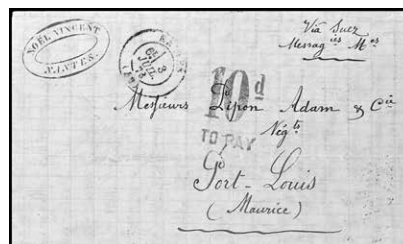 NOËL VINCENT
NANTES
Via Suez
Messag ies M es
10d
TO PAY
Messieurs Lipon Adam & Cie
Négts
Port-Louis
(Maurice)